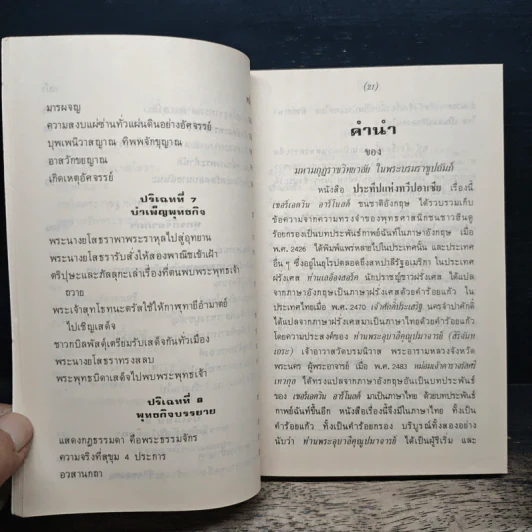 มารผจญ
ความสงบแผ่ซ่านทั่วแผ่นดินอย่างอัศจรรย์
บุพเพนิวาสญาณ ทิพพจักขุญาณ
อาสวักขยญาณ
เกิดเหตุอัศจรรย์
ปริเฉทที่ ๗
บำเพ็ญพุทธกิจ
พระนางยโสธราพาพระราหุลไปสู่อุทยาน
พระนางยโสธรารับสั่งให้สองพาณิชเข้าเฝ้า
ตริปุษะและภัลลุกะเล่าเรื่องที่ตนพบพระพุทธเจ้า
ถวาย
พระเจ้าสุทโธทนะตรัสใช้ให้กาฬุทายีอำมาตย์
ไปเชิญเสด็จ
ชาวกบิลพัสดุ์เตรียมรับเสด็จกันทั่วเมือง
พระนางยโสธราทรงสลบ
พระพุทธบิดาเสด็จไปพบพระพุทธเจ้า
ปริเฉทที่ ๘
พุทธกิจบรรยาย
แสดงกฎธรรมดา คือพระธรรมจักร
ความจริงที่สุขุม 4 ประการ
อวสานกถา
(21)
คำนำ
ของ
มหามกุฏราชวิทยาลัย ในพระบรมราชูปถัมภ์
หนังสือ ประทีปแห่งทวีปอาเซีย เรื่องนี้
เซอร์เอดวิน อาร์โนลด์ ชนชาติอังกฤษ ได้รวบรวมเก็บ
ข้อความจากความทรงจำของพุทธศาสนิกชนชาวสินธู
ร้อยกรองเป็นบทประพันธ์กาพย์ฉันท์ในภาษาอังกฤษ เมื่อ
พ.ศ. 2426 ได้พิมพ์แพร่หลายไปในประเทศนั้น และประเทศ
อื่น ๆ ซึ่งอยู่ในยุโรปตลอดถึงสหปาลีรัฐอเมริกา ในประเทศ
ฝรั่งเศส ท่านเลอองสอร์ค นักปราชญ์ชาวฝรั่งเศส ได้แปล
จากภาษาอังกฤษเป็นภาษาฝรั่งเศสด้วยคำร้อยแก้ว ใน
ประเทศไทยเมื่อ พ.ศ. 2470 เจ้าศักดิ์ประเสริฐ นครจำปาศักดิ์
ได้แปลจากภาษาฝรั่งเศสมาเป็นภาษาไทยด้วยคำร้อยแก้ว
โดยความประสงค์ของ ท่านพระอุบาลีคุณูปมาจารย์ (สิริจันท
เถระ) เจ้าอาวาสวัดบรมนิวาส พระอารามหลวงจังหวัด
พระนคร ผู้พระอาจารย์ เมื่อ พ.ศ. 2483 หม่อมเจ้า
ได้ทรงแปลจากภาษาอังกฤษอันเป็นบทประพันธ์
ของ เซอร์เอดวิน อาร์โนลด์ มาเป็นภาษาไทย ด้วยบทประพันธ์
กาพย์ฉันท์ขึ้นอีก หนังสือเรื่องนี้จึงมีในภาษาไทย ทั้งเป็น
คำร้อยแก้ว ทั้งเป็นคำร้อยกรอง บริบูรณ์ทั้งสองอย่าง
นับว่า ท่านพระอุบาลีคุณูปมาจารย์ ได้เป็นผู้ริเริ่ม และ